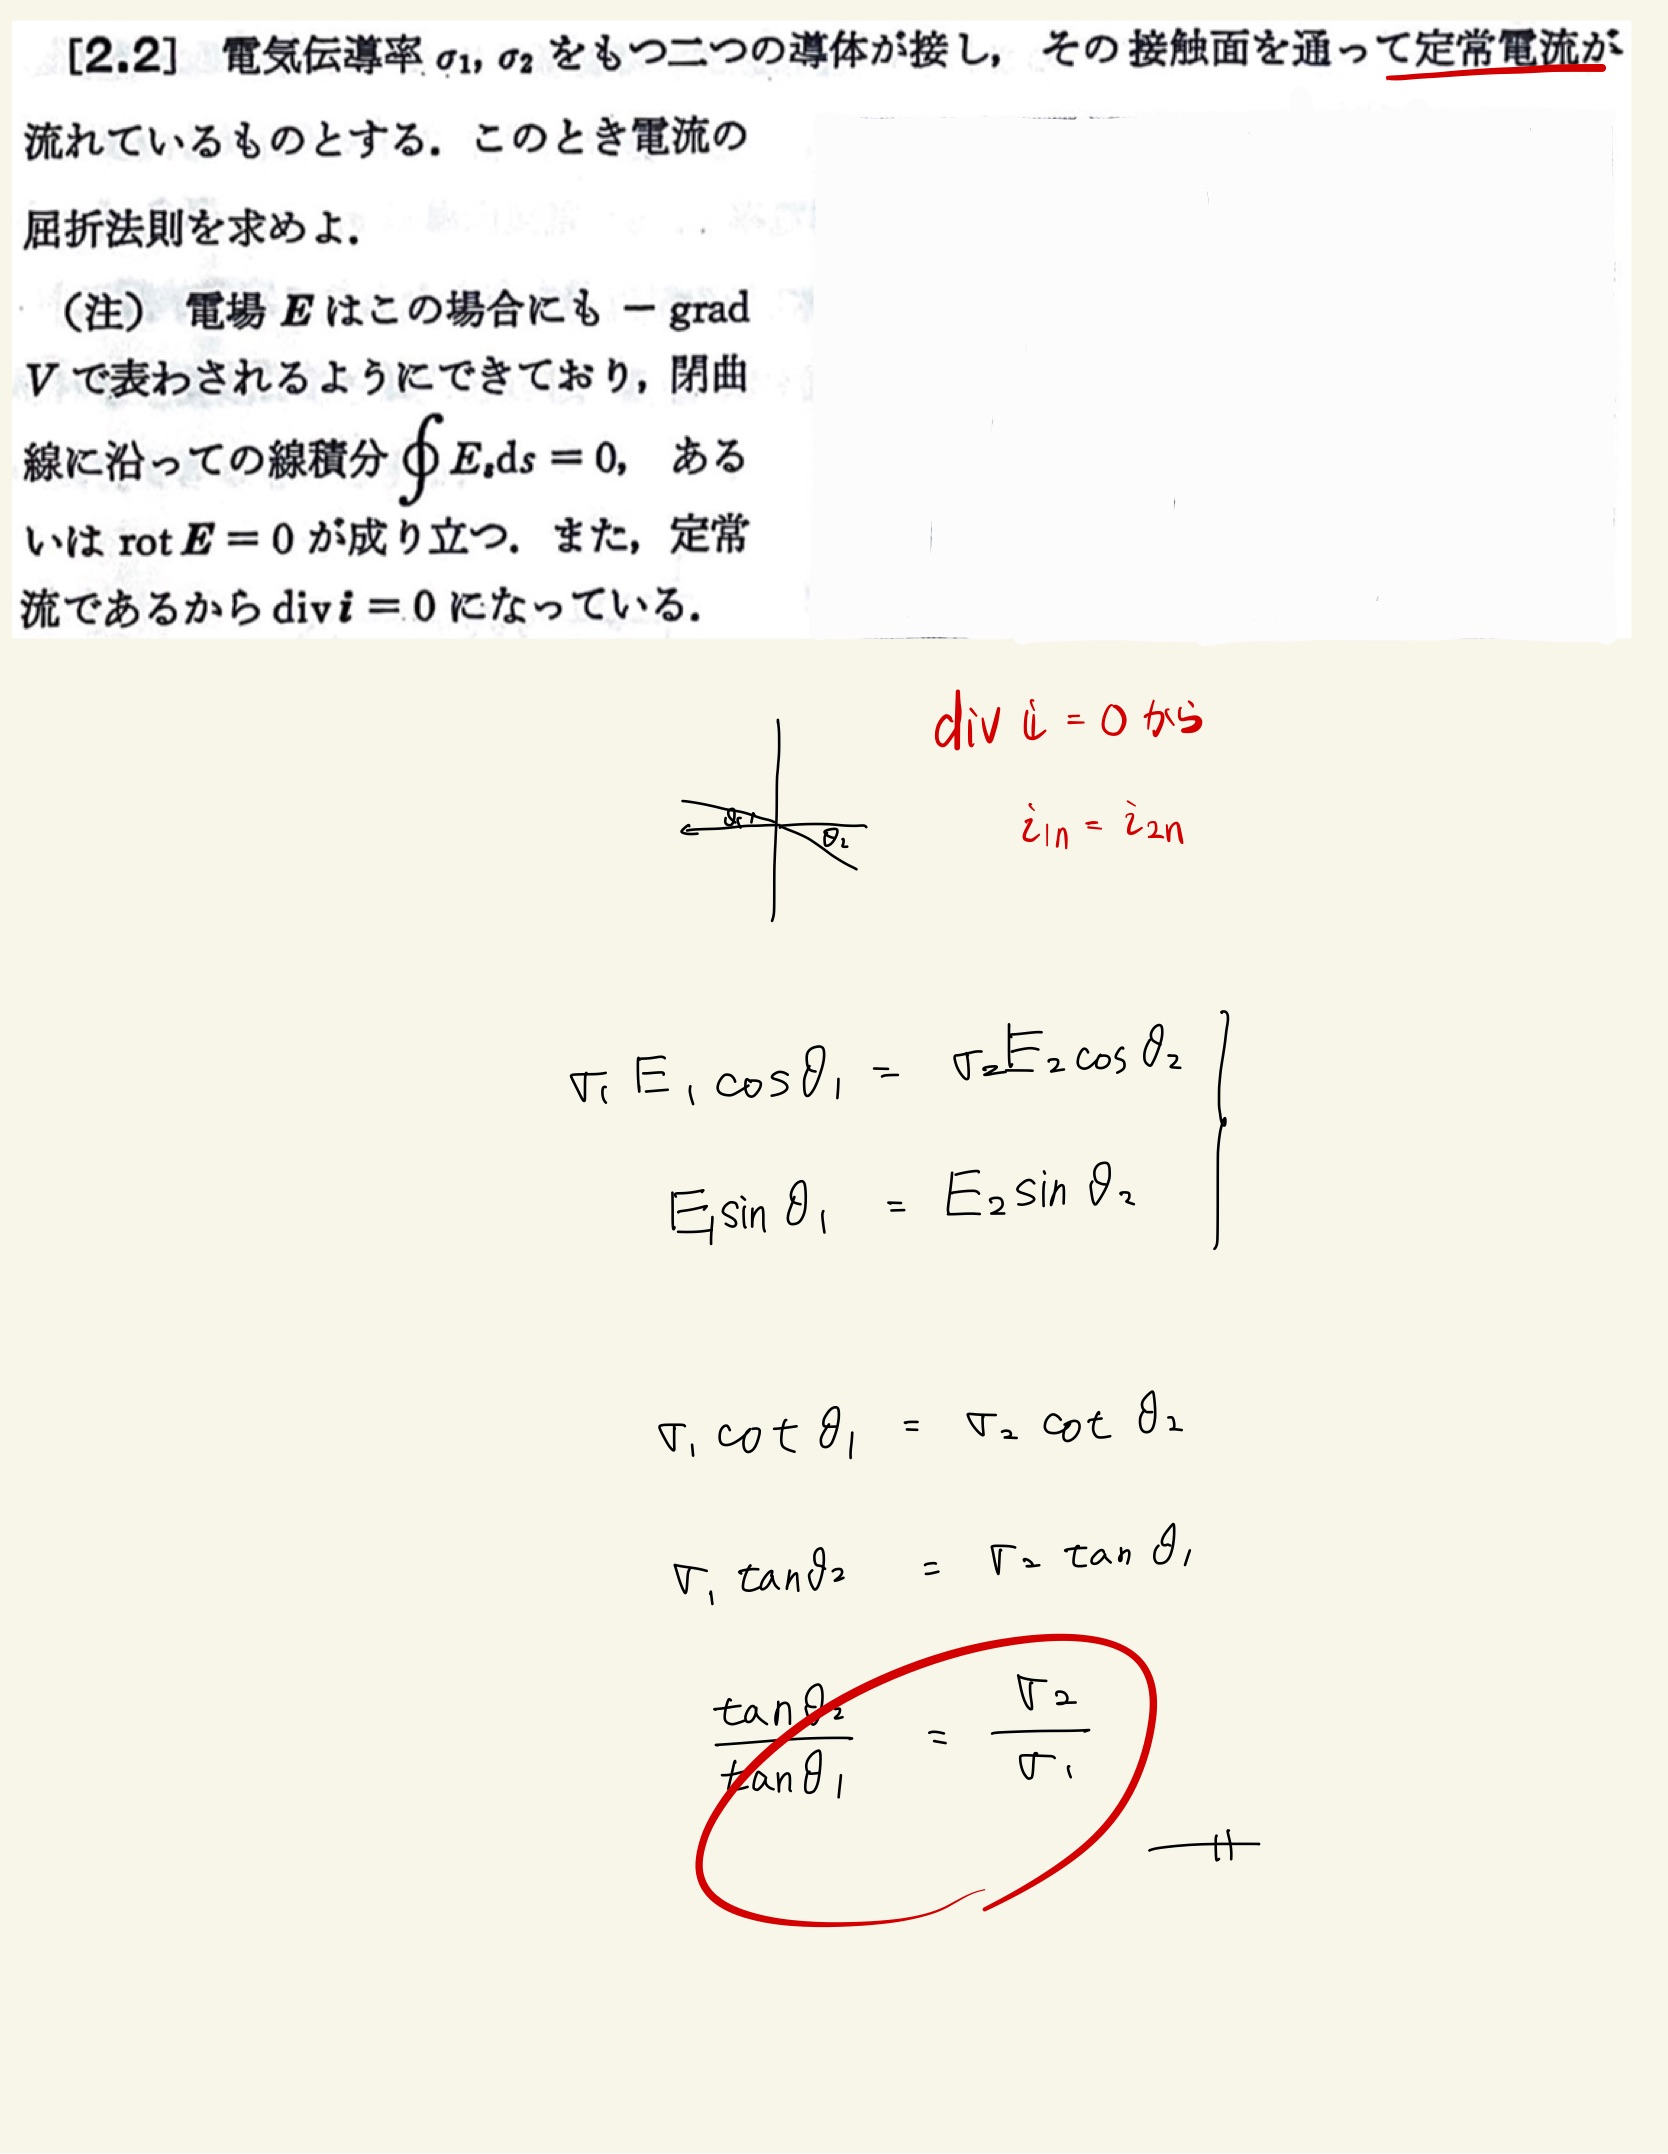 [2.2] 電気伝導率 σ₁, σ₂ をもつ二つの導体が接し, その接触面を通って定常電流が
流れているものとする. このとき電流の
屈折法則を求めよ.
(注) 電場 E はこの場合にも − grad
V で表わされるようにできており, 閉曲
線に沿っての線積分 ∮ Eₛds = 0, ある
いは rot E = 0 が成り立つ. また, 定常
流であるから div i = 0 になっている.
div i = 0 から
i₁ₙ = i₂ₙ
θ₁
θ₂
σ₁ E₁ cosθ₁ = σ₂E₂ cos θ₂
E₁ sin θ₁ = E₂ sin θ₂
σ₁ cot θ₁ = σ₂ cot θ₂
σ₁ tanθ₂ = σ₂ tan θ₁
tanθ₂/tanθ₁ = σ₂/σ₁